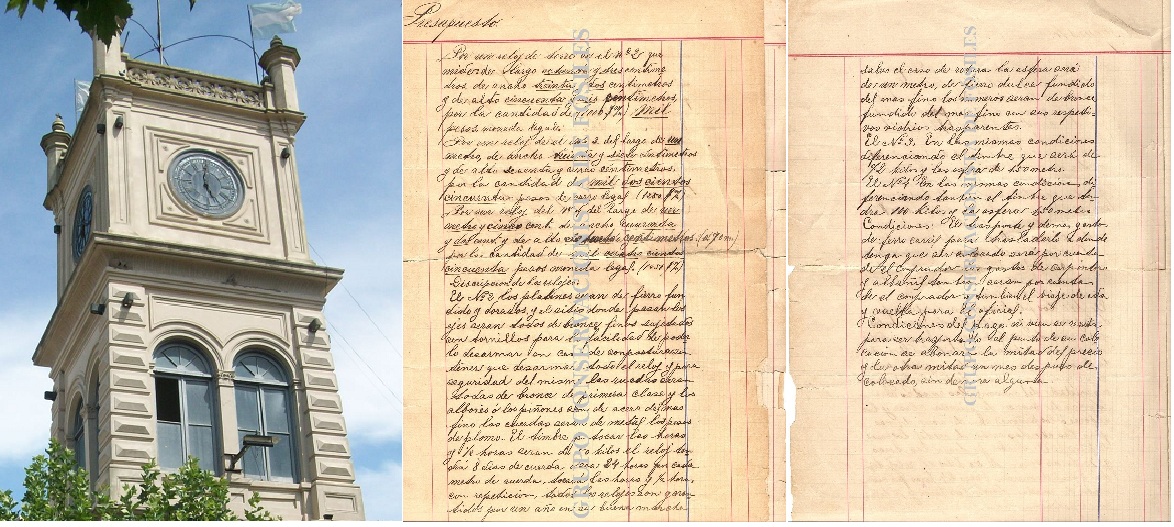 Presupuesto.
Por un reloj de torre de el Nº 2 que
mide de largo ochenta y tres centime
tros de ancho treinta y dos centimetros
y de alto cincuenta y seis centimetros,
por la cantidad de (1000 $ %) Mil
pesos moneda legal.
Por un reloj de el Nº 3 del largo de un
metro, de ancho treinta y siete centimetros
y de alto sesenta y cinco centimetros,
por la cantidad de mil doscientos
cincuenta pesos moneda legal (1250 $ %)
Por un reloj del Nº 4 del largo de un
metro y cinco cent. de ancho cuarenta
y de alto centimetros (0,70 cm)
por la cantidad de mil cuatro cientos
cincuenta pesos moneda legal (1450 $ %)
Descripcion de los relojes
El Nº 2 los platinos seran de fierro fun
dido y dorados, y el sitio donde pasan los
ejes seran todos de bronce finos sujetados
con tornillos para la facilidad de poder
lo desarmar en caso de compostura sin
tener que desarmar todo el reloj y para
seguridad del mismo las ruedas seran
todas de bronce de primera clase y los
arboles ó los piñones son de acero del mas
fino las cuerdas seran de metal los pesos
de plomo. El timbre de tocar las horas
y ½ horas seran de kilos el reloj ten
drá 8 dias de cuerda, ó sea 24 horas por cada
metro de cuerda, tocará las horas y ½ hora,
con repeticion, todos los relojes son garan
tidos por un año en su buena marcha
salvo el caso de rotura la esfera será
de un metro, de fierro dulce fundido
del mas fino los numeros seran de bronce
fundido del mas fino con sus respecti
vos vidrios trasparentes.
El Nº 3, En las mismas condiciones
diferenciando el timbre que será de
72 kilos y la esfera de 1.50 metro.
El Nº 4 En las mismas condiciones di
ferenciando tambien el timbre que ten
dra 100 kilos y la esfera metros
Condiciones: El trasporte y demas gastos
de ferro carril para trasladarlo á donde
tenga que ser colocado será por cuenta
del comprador los gastos de carpinte
ro y albañil tambien seran por cuenta
de el comprador y tambien el viaje de ida
y vuelta para el oficial.
Condiciones del pago si
para ser el punto de su colo
cacion se abonará la mitad del precio
y la otra mitad un mes despues de
colocado, sin demora alguna.
GRUPO CONSERVACIONISTA DE RELOJES
GRUPO CONSERVACIONISTA DE RELOJES